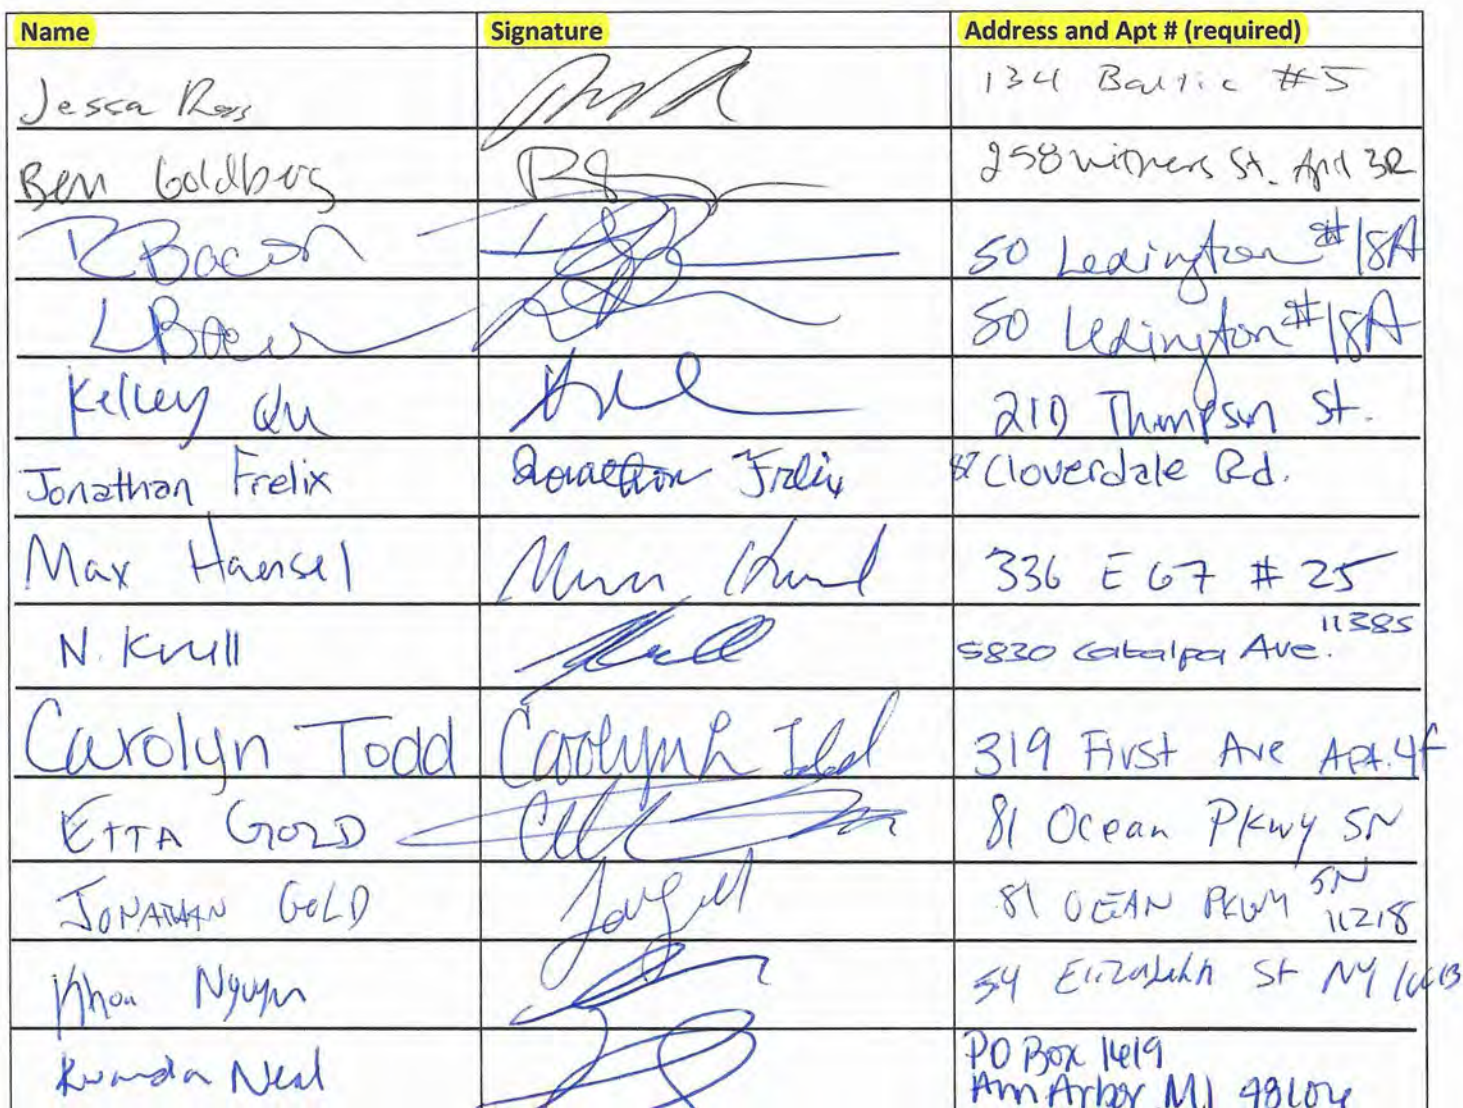 Name Signature Address and Apt # (required)
Jessa Ross 134 Baltic #5
Ben Goldberg 258 Withers St. Apt 3R
R Bacon 50 Lexington #18A
L Bacon 50 Lexington #18A
Kelley Qu 210 Thompson St.
Jonathan Frelix Jonathan Frelix 87 Cloverdale Rd.
Max Haensel 336 E 67 # 25
N. Krull 5830 Catalpa Ave. 11385
Carolyn Todd Carolyn L Todd 319 First Ave Apt. 4F
ETTA GOLD 81 Ocean Pkwy 5N
JONATHAN GOLD 81 OCEAN PKWY 5N
11218
Khoa Nguyen 54 Elizabeth St NY 10013
Neal PO Box
Ann Arbor MI